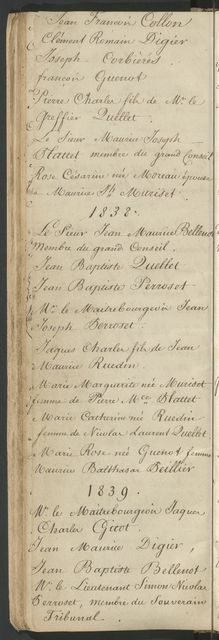 Jean François Collon
Clément Romain Digier
Joseph Corbières
françois Guenot
Pierre Charles fils de Mr. le
Greffier Quellet.
Le Sieur Maurice Joseph
Hattet membre du grand Conseil
Rose Césarine née Moreau épouse
Maurice Muriset.
1838.
Le Sieur Jean Maurice Bellenot
membre du grand Conseil.
Jean Baptiste Quellet
Jean Baptiste Perroset
Mr. le Maitrebourgeoin Jean
Joseph Perroset.
Jaques Charles fils de Jean
Maurice Ruedin.
Marie Marguerite née Muriset
femme de Pierre Mce Hattet
Marie Catherine née Ruedin
femme de Nicolas Laurent Quellet
Marie Rose née Guenot femme
Maurice Balthasar Beillier
1839.
Mr. le Maitrebourgeoin Jaques
Charles Gicot.
Jean Maurice Digier,
Jean Baptiste Bellenot
Mr. le Lieutenant Simon Nicolas
Perroset, membre du Souverain
Tribunal.